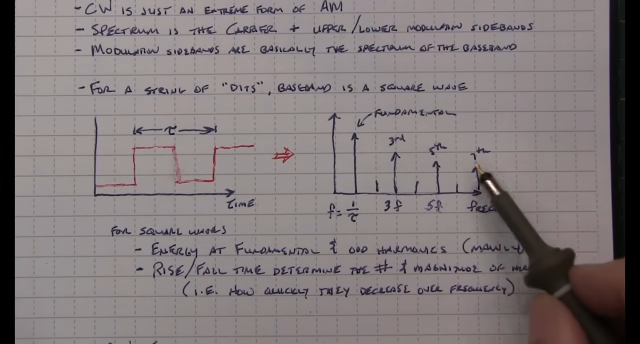 - CW IS JUST AN EXTREME FORM OF AM
- SPECTRUM IS THE CARRIER + UPPER/LOWER MODULATION SIDEBANDS
- MODULATION SIDEBANDS ARE BASICALLY THE SPECTRUM OF THE BASEBAND
- FOR A STRING OF "DITS", BASEBAND IS A SQUARE WAVE
τ
TIME
FUNDAMENTAL
3rd
5th
7th
f = 1/τ 3f 5f FREQ
FOR SQUARE WAVES
- ENERGY AT FUNDAMENTAL & ODD HARMONICS (MAINLY
- RISE/FALL TIME DETERMINE THE # & MAGNITUDE OF
(I.E. HOW QUICKLY THEY DECREASE OVER FREQUENCY)